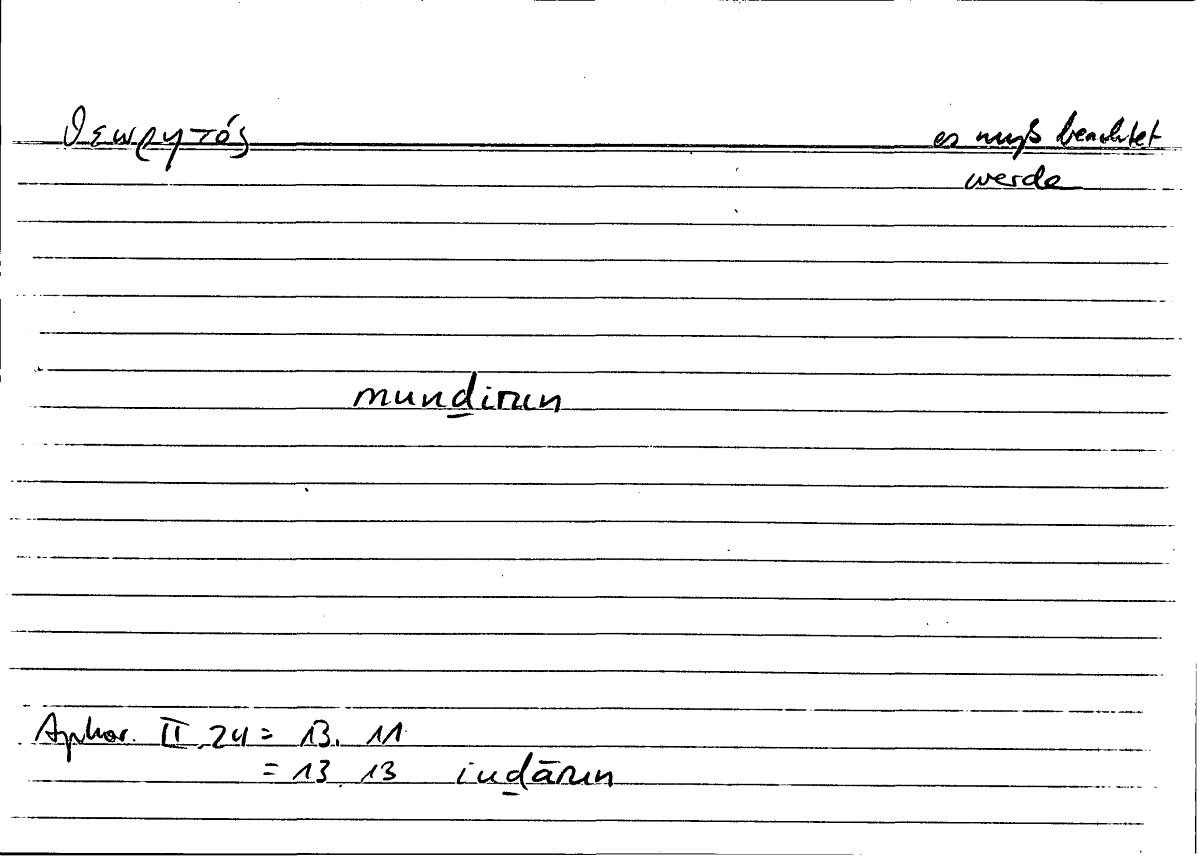 θεωρητός es muß beachtet
werde
munḏirun
Aphor. II 24 = 13. 11
= 13 13 iuḏārun